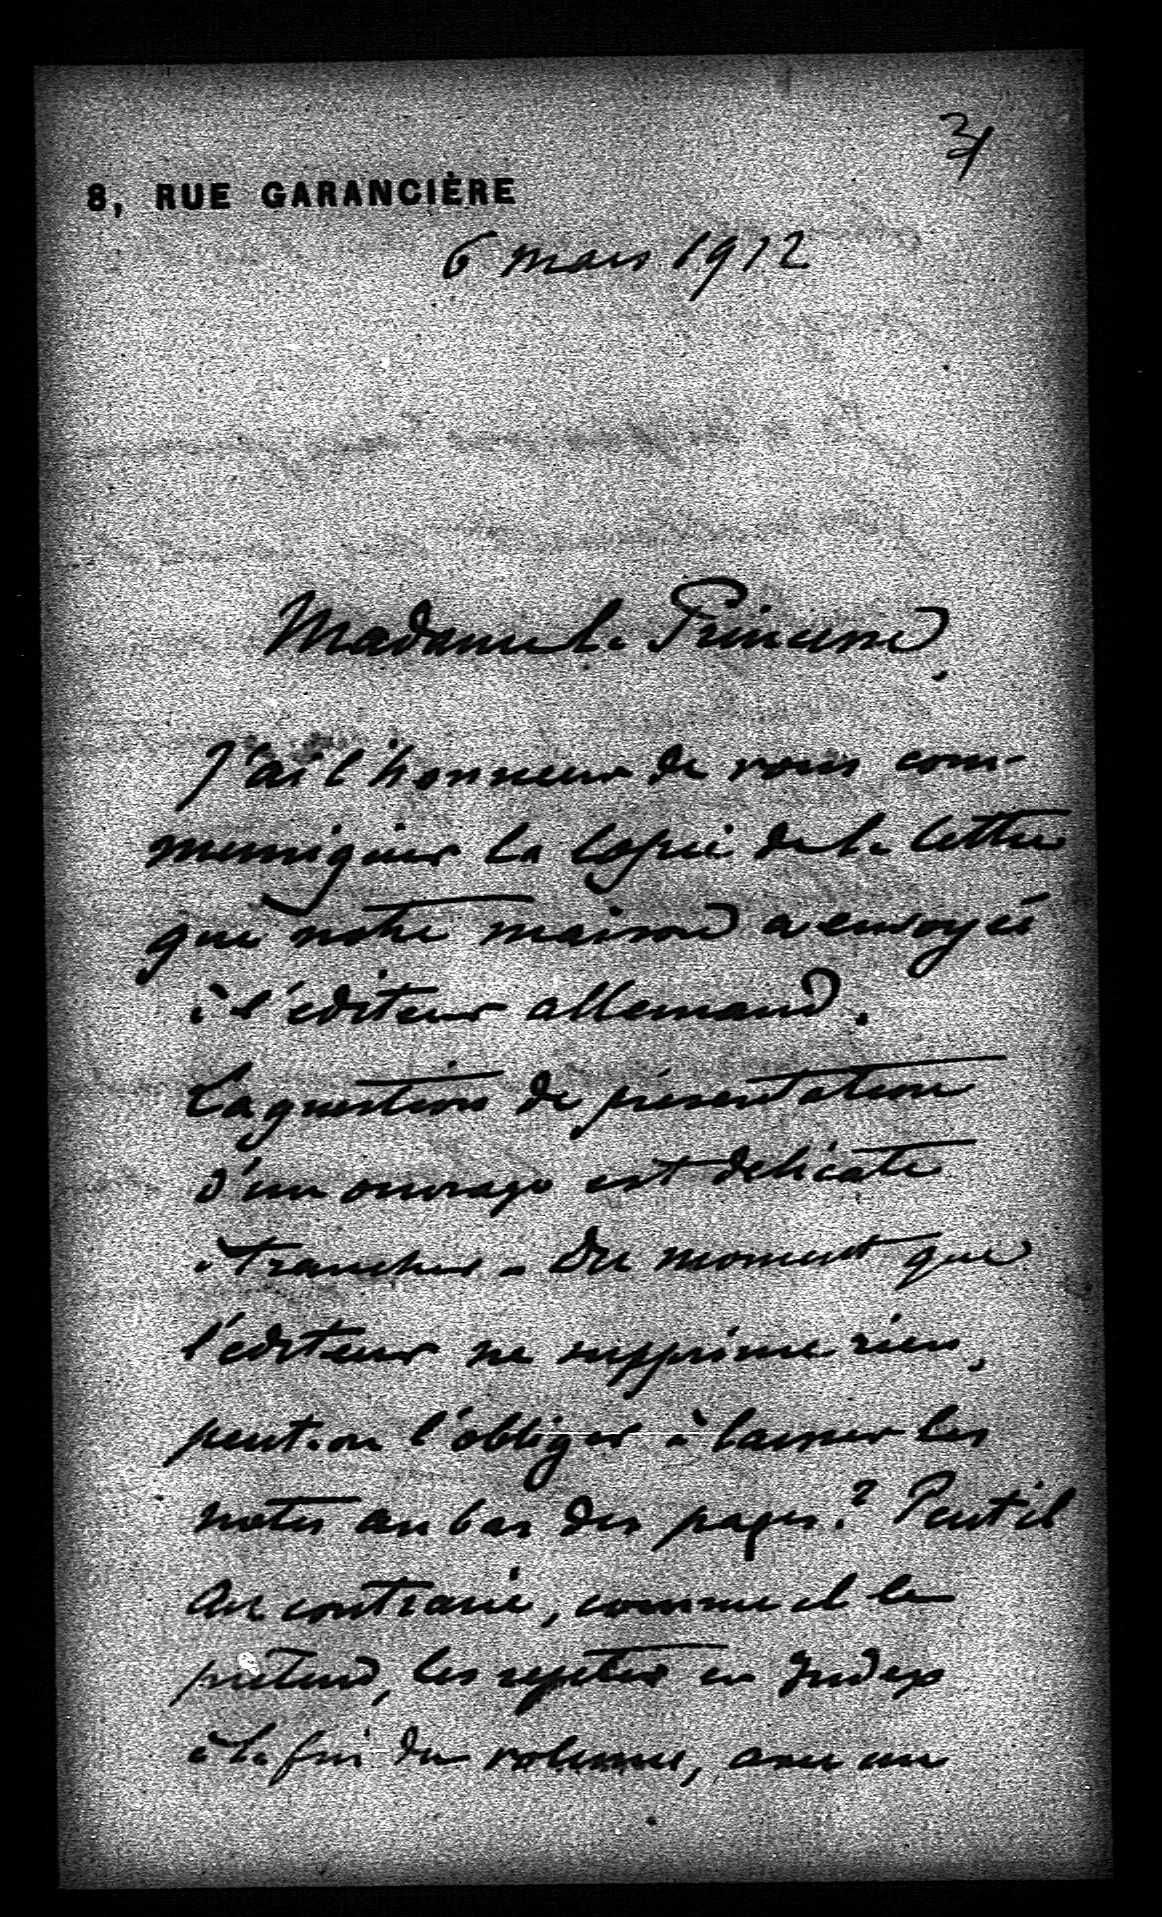 3/
8, RUE GARANCIÈRE
6 mars 1912
Madame la Princesse,
J'ai l'honneur de vous com-
muniquer la copie de la lettre
que notre maison a envoyée
à l'éditeur allemand.
La question de présentation
d'un ouvrage est délicate
à trancher - Du moment que
l'éditeur ne supprime rien,
peut-on l'obliger à laisser les
notes au bas des pages ? Peut il
au contraire, comme il le
prétend, les rejeter en Index
à la fin du volume, avec un